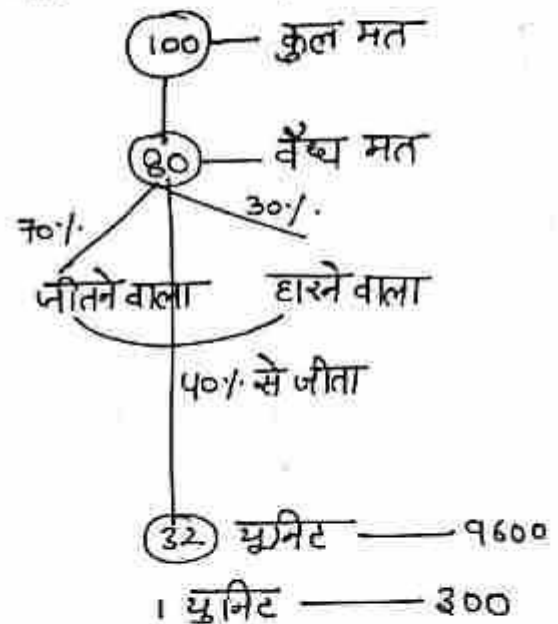 100 — कुल मत
80 — वैध्य मत
70%. 30%.
जीतने वाला हारने वाला
40%. से जीता
32 यूनिट — 9600
1 युनिट — 300